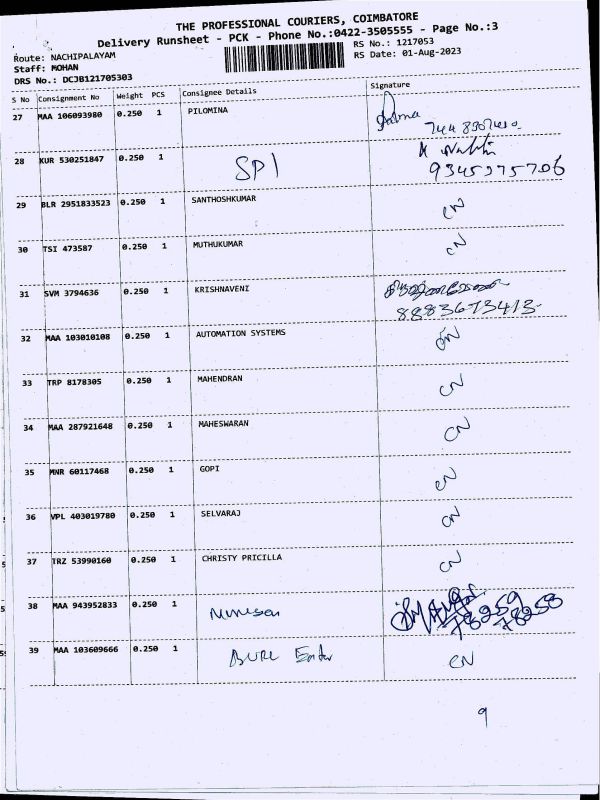 THE PROFESSIONAL COURIERS, COIMBATORE
Delivery Runsheet - PCK - Phone No.:0422-3505555 - Page No.:3
Route: NACHIPALAYAM
RS No.: 1217053
Staff: MOHAN
RS Date: 01-Aug-2023
DRS No.: DCJB121705303
S No Consignment No Weight PCS Consignee Details Signature
27 MAA 106093980 0.250 1 PILOMINA
28 KUR 530251847 0.250 1 SP1
29 BLR 2951833523 0.250 1 SANTHOSHKUMAR CN
30 TSI 473587 0.250 1 MUTHUKUMAR CN
31 SVM 3794636 0.250 1 KRISHNAVENI
8883673413
32 MAA 103010108 0.250 1 AUTOMATION SYSTEMS
33 TRP 8178305 0.250 1 MAHENDRAN CN
34 MAA 287921648 0.250 1 MAHESWARAN CN
35 MNR 60117468 0.250 1 GOPI CN
36 VPL 403019780 0.250 1 SELVARAJ CN
37 TRZ 53990160 0.250 1 CHRISTY PRICILLA CN
38 MAA 943952833 0.250 1
78259
78258
39 MAA 103609666 0.250 1 CN
9